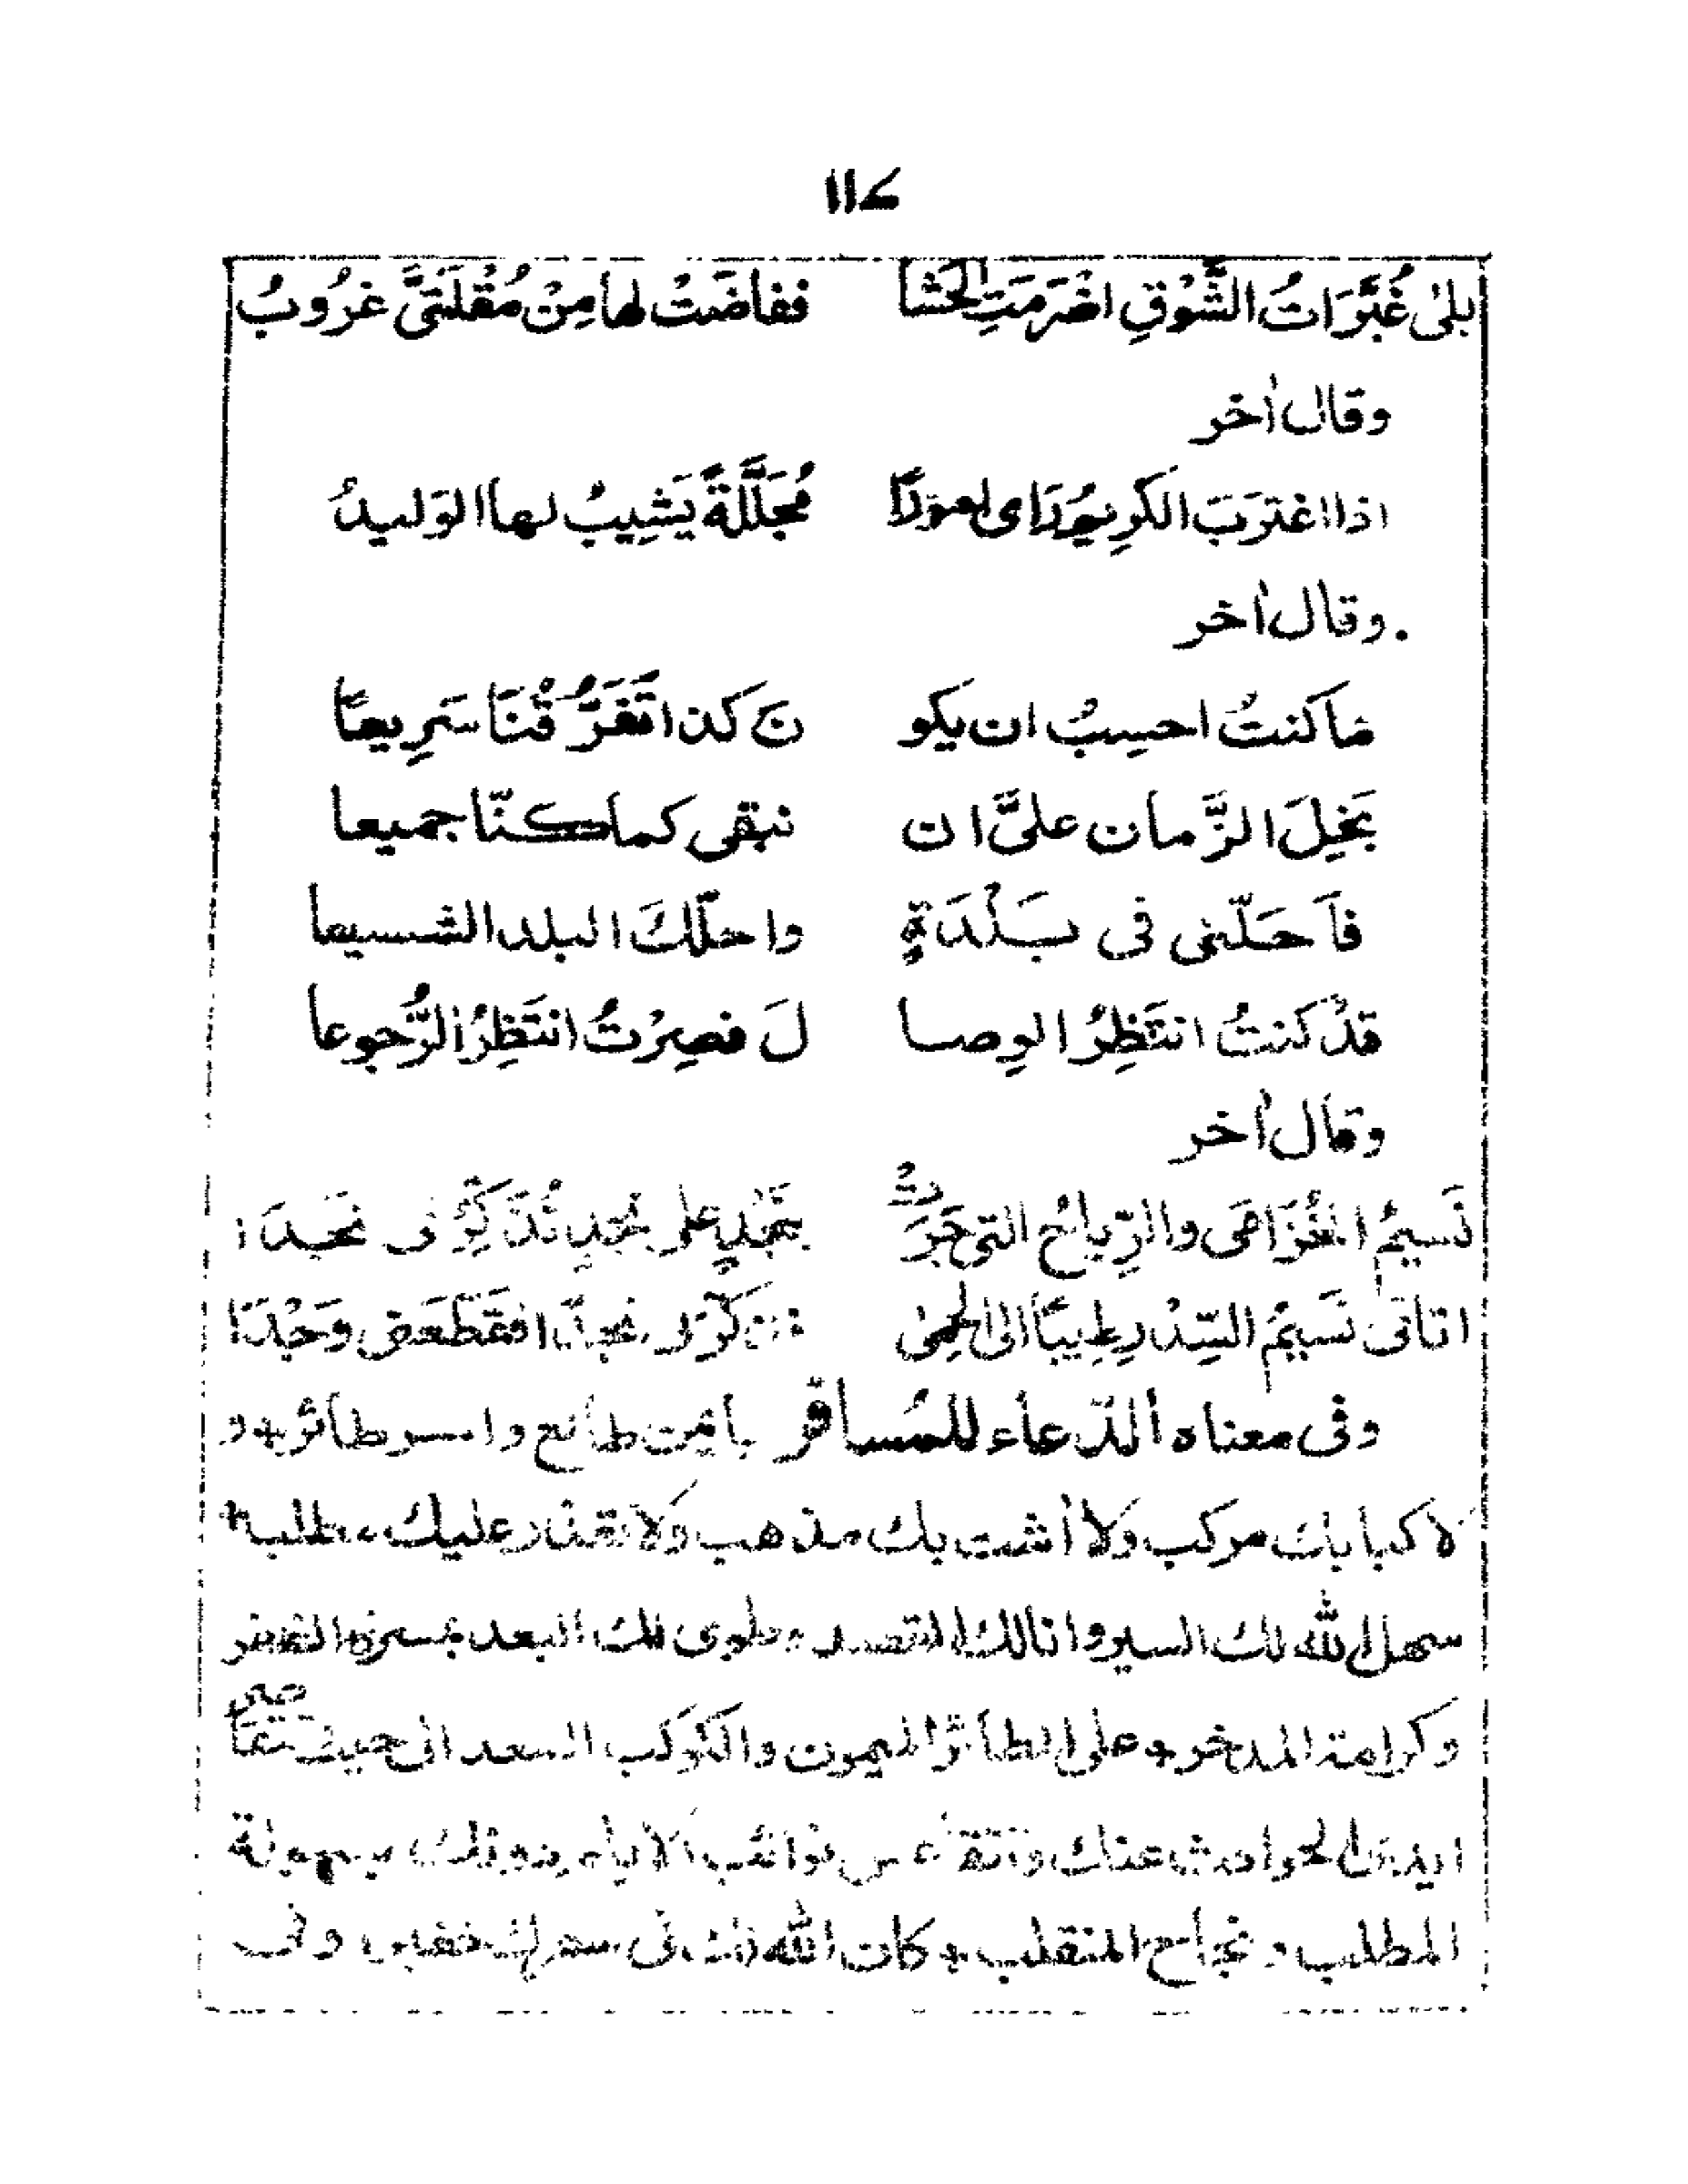 ١١٤
بلىٰ غُبَّرَاتُ الشَّوْقِ اضْرَمَتِ الحَشَا ففاضَتْ لها مِنْ مُقْلَتَىَّ غرُوبُ
وقال اٰخر
اذا اغترَبَ الكَرِيمُ رَاى امورًا مُجَلَّلَةً يَشِيبُ لها الوَليدُ
وقال اٰخر
مَا كنتُ احسِبُ ان يكو نَ كذا تَفَرُّقُنَا سَرِيعًا
بَخِلَ الزَّمان علىَّ ان نبقى كما كنّا جميعا
فاَحَلّنى فى بَلْدَةٍ واحلّكَ البلد الشسيعا
قدْ كنتُ انتَظِرُ الوِصا لَ فصِرْتُ انتَظِرُ الرُّجوعا
وقال اٰخر
نَسيمُ الخُزَامَى والرِّياحُ التى جَرَتْ بنَجْدٍ على نَجْدٍ تُذَكِّرُنى نَجْدَا
اتانى نَسيمُ السِّدْرِ طِيبًا الى الحِمىٰ فَذَكَّرَنى نجدًا فقَطَّعَنى وَجْدَا
وفى معناه الدّعاء للمُسافر بايمن طالع واسر طائر و
لا كبا بك مركب ولا اشت بك مذهب ولا تعذر عليك مطلب
سهل الله لك السير وانالك القصد وطوى لك البعد بمسرة الظفر
وكرامة المدخر على الطائر الميمون والكوكب السعد الى حيث
الحوادث عنك نوائب الايام بسهولة
المطلب ونجاح المنقلب وكان الله لك فى سفرك خفير وفى